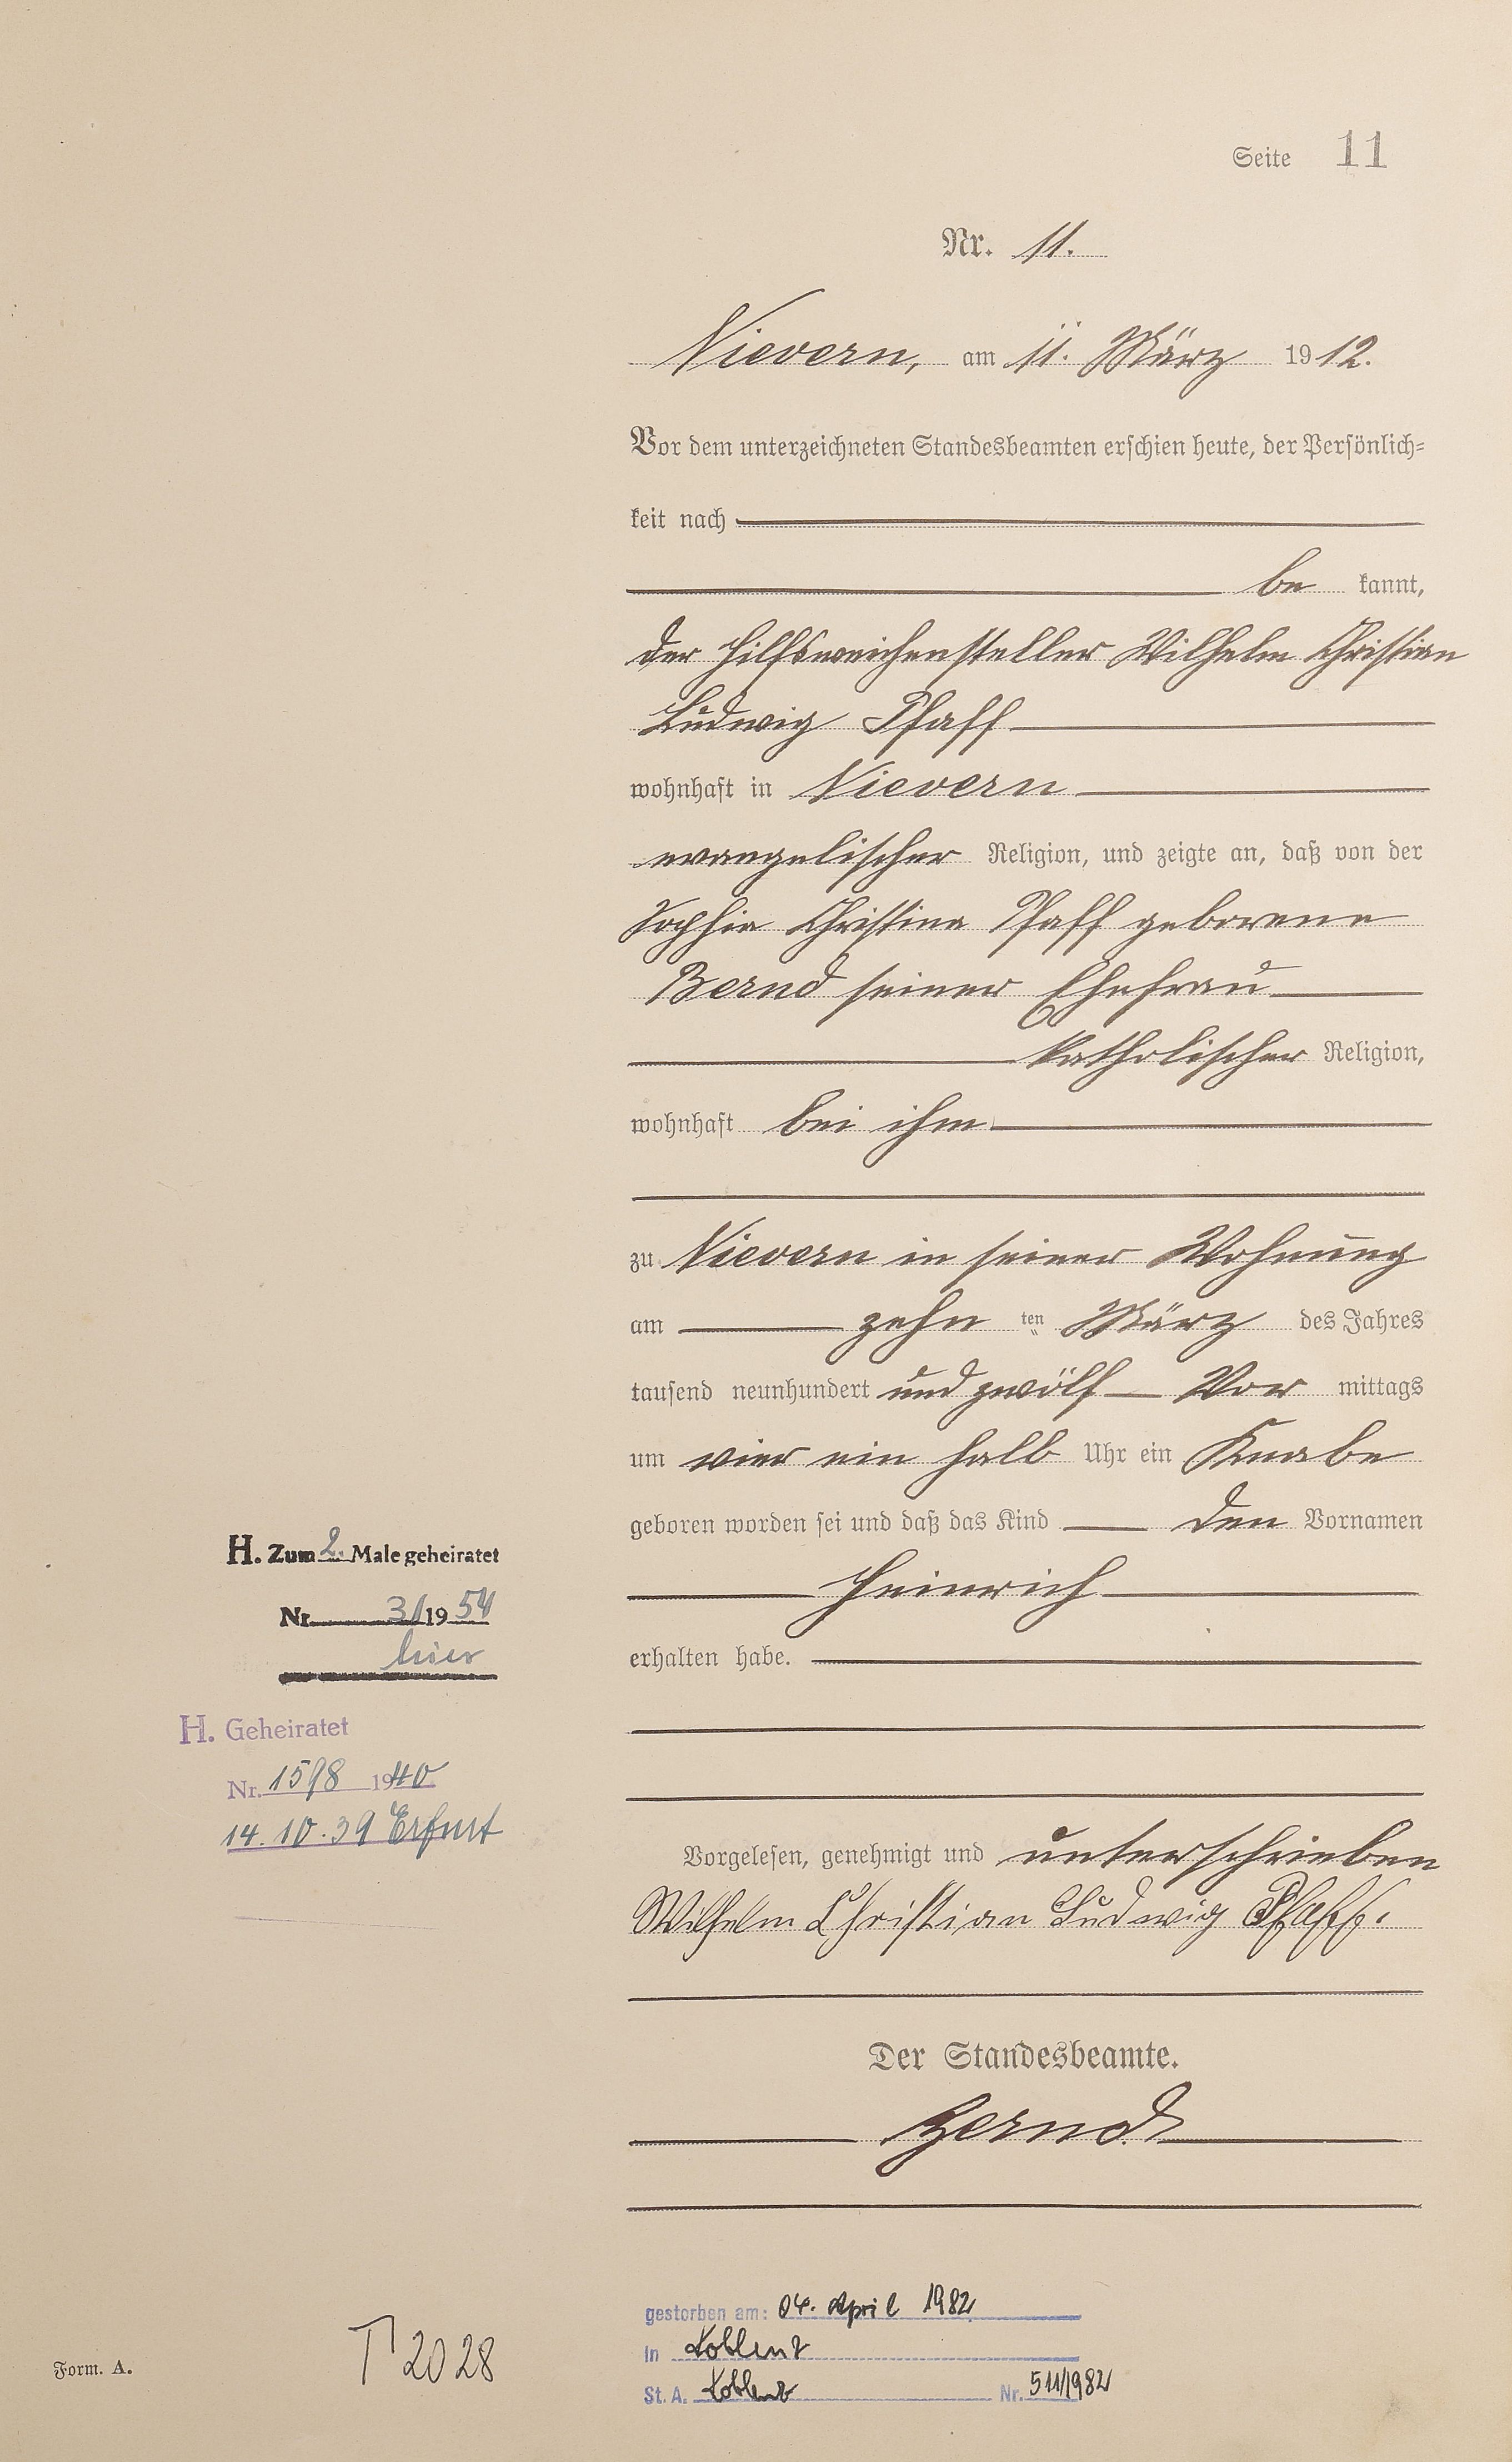 Seite 11
Nr. 11.
Nievern, am 11. März 1912.
Vor dem unterzeichneten Standesbeamten erschien heute, der Persönlich-
keit nach
be kannt,
der Hilfsweichensteller Wilhelm Christian
Ludwig Pfaff
wohnhaft in Nievern
evangelischer Religion, und zeigte an, daß von der
Sophia Christina Pfaff geborene
Bernd seiner Ehefrau
katholischer Religion,
wohnhaft bei ihm
zu Nievern in seiner Wohnung
am zehn ten März des Jahres
tausend neunhundert und zwölf Vor mittags
um vier ein halb Uhr ein Knabe
geboren worden sei und daß das Kind den Vornamen
Heinrich
erhalten habe.
Vorgelesen, genehmigt und unterschrieben
Wilhelm Christian Ludwig Pfaff.
Der Standesbeamte.
Bernd
H. Zum 2. Male geheiratet
Nr. 3/1954
hier
H. Geheiratet
Nr. 1598 1940
14.10.39 Erfurt
gestorben am: 04. April 1982
in Koblenz
St. A. Koblenz Nr. 511/1982
T 2028
Form. A.